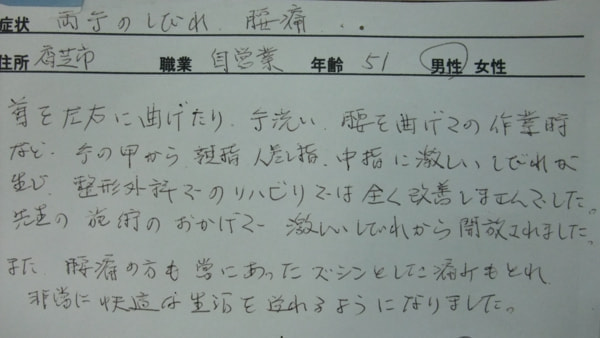 症状 両手のしびれ、腰痛 ..
住所 香芝市 職業 自営業 年齢 51 男性 女性
首を左右に曲げたり、手洗い、腰を曲げての作業時
など、手の甲から、親指、人差し指、中指に激しいしびれが
生じ、整形外科でのリハビリでは全く改善しませんでした。
先生の施術のおかげで激しいしびれから開放されました。
また、腰痛の方も常にあったズシンとした痛みもとれ、
非常に快適な生活を送れるようになりました。